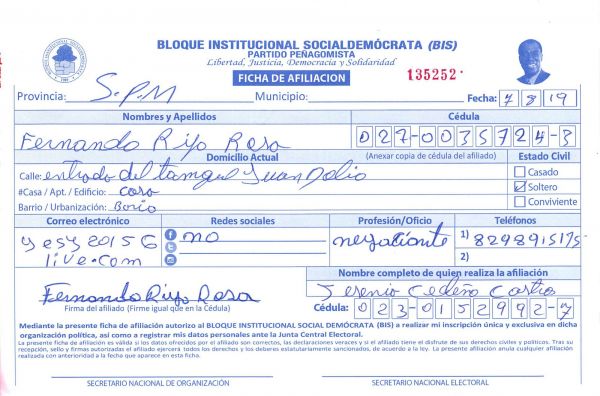 BLOQUE INSTITUCIONAL SOCIALDEMÓCRATA (BIS)
PARTIDO PEÑAGOMISTA
Libertad, Justicia, Democracia y Solidaridad
FICHA DE AFILIACION
135252
Provincia: S.P.M Municipio: Fecha: 7 8 19
Nombres y Apellidos Cédula
Fernando Rijo Rosa 027-0035724-3
Domicilio Actual (Anexar copia de cédula del afiliado) Estado Civil
Calle: entrada del Juan Dolio Casado
#Casa / Apt. / Edificio: casa Soltero
Barrio / Urbanización: Conviviente
Correo electrónico Redes sociales Profesión/Oficio Teléfonos
yesy2015 no negociante 1)
live.com 2)
Nombre completo de quien realiza la afiliación
Cedeño Castro
Fernando Rijo Rosa Cédula: 023-0152992-7
Firma del afiliado (Firme igual que en la Cédula)
Mediante la presente ficha de afiliación autorizo al BLOQUE INSTITUCIONAL SOCIAL DEMÓCRATA (BIS) a realizar mi inscripción única y exclusiva en dicha
organización política, así como a registrar mis datos personales ante la Junta Central Electoral.
La presente ficha de afiliación es válida si los datos ofrecidos por el afiliado son correctos, las declaraciones veraces y si el afiliado tiene el disfrute de sus derechos civiles y políticos. Tras su
recepción, sello y firmas autorizadas el afiliado ejercerá todos los derechos y los deberes estatutariamente sancionados, de acuerdo a la ley. La presente afiliación anula cualquier afiliación
realizada con anterioridad a la fecha que aparece en esta ficha.
SECRETARIO NACIONAL DE ORGANIZACIÓN SECRETARIO NACIONAL ELECTORAL